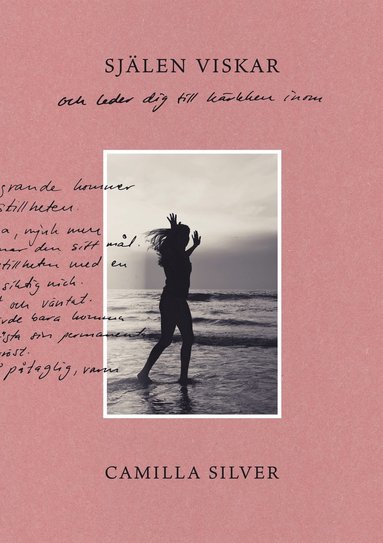 SJÄLEN VISKAR
och leder dig till kärleken inom
grande kommer
stillheten.
a, mjuk men
nar den sitt mål.
stillheten med en
siktig nick.
t och väntat.
rde bara komma
sista sin permanenta
röst.
påtaglig, varm
CAMILLA SILVER